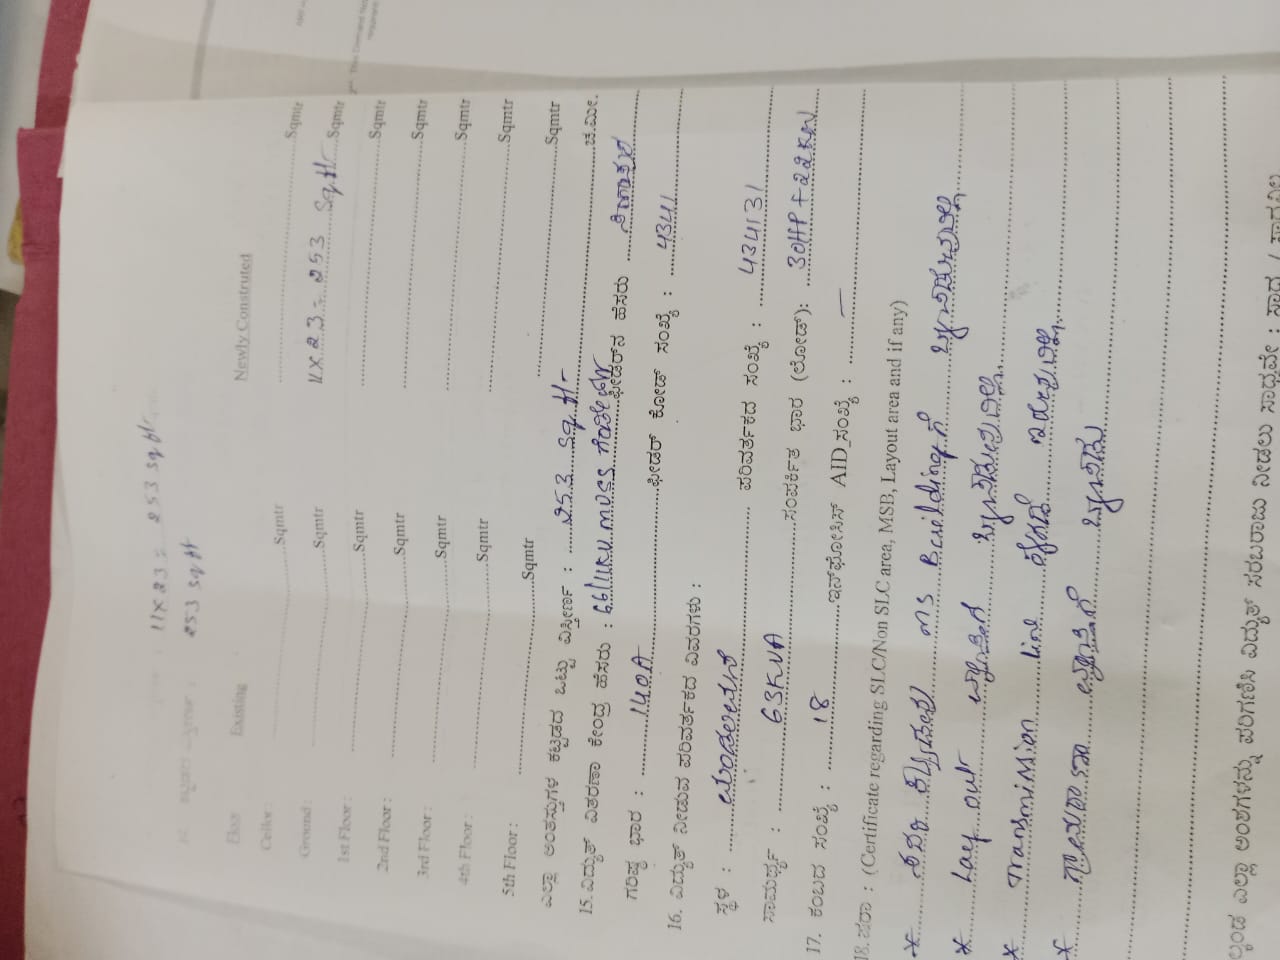 11 x 23 = 253 sq ft
253 sq ft
Floor Existing Newly Construted
Celler : Sqmtr Sqmtr
Ground : Sqmtr 11 x 23 = 253 Sq ft Sqmtr
1st Floor : Sqmtr Sqmtr
2nd Floor : Sqmtr Sqmtr
3rd Floor : Sqmtr Sqmtr
4th Floor : Sqmtr Sqmtr
5th Floor : Sqmtr Sqmtr
ಎಲ್ಲಾ ಅಂತಸ್ತುಗಳ ಕಟ್ಟಡದ ಒಟ್ಟು ವಿಸ್ತೀರ್ಣ : 253 sq ft ಚ.ಮೀ.
15. ವಿದ್ಯುತ್ ವಿತರಣಾ ಕೇಂದ್ರ ಹೆಸರು : 66/11KV MUSS ಫೀಡರ್‌ನ ಹೆಸರು
ಗರಿಷ್ಠ ಭಾರ : 140A ಫೀಡರ್ ಕೋಡ್ ಸಂಖ್ಯೆ : 4341
16. ವಿದ್ಯುತ್ ನೀಡುವ ಪರಿವರ್ತಕದ ವಿವರಗಳು :
ಸ್ಥಳ : ಪರಿವರ್ತಕದ ಸಂಖ್ಯೆ : 434131
ಸಾಮರ್ಥ್ಯ : 63KVA ಸಂಪರ್ಕಿತ ಭಾರ (ಲೋಡ್): 30HP + 22KW
17. ಕಂಬದ ಸಂಖ್ಯೆ : 18 ಇನ್‌ಫೋಸಿಸ್ AID ಸಂಖ್ಯೆ : —
18. ಷರಾ : (Certificate regarding SLC/Non SLC area, MSB, Layout area and if any)
* ಸದರಿ ಕಟ್ಟಡವು MS Building ಗೆ ಒಳಪಡುವುದಿಲ್ಲ
* Lay out ವ್ಯಾಪ್ತಿಗೆ ಒಳಪಡುವುದಿಲ್ಲ
* Transmission line ಕೆಳಗಡೆ ಇರುವುದಿಲ್ಲ
* ಗ್ರಾಮಠಾಣಾ ವ್ಯಾಪ್ತಿಗೆ
ಎಲ್ಲಾ ಅಂಶಗಳನ್ನು ಪರಿಗಣಿಸಿ ವಿದ್ಯುತ್ ಸರಬರಾಜು ನೀಡಲು ಸಾಧ್ಯವೇ : ಸಾಧ್ಯ /